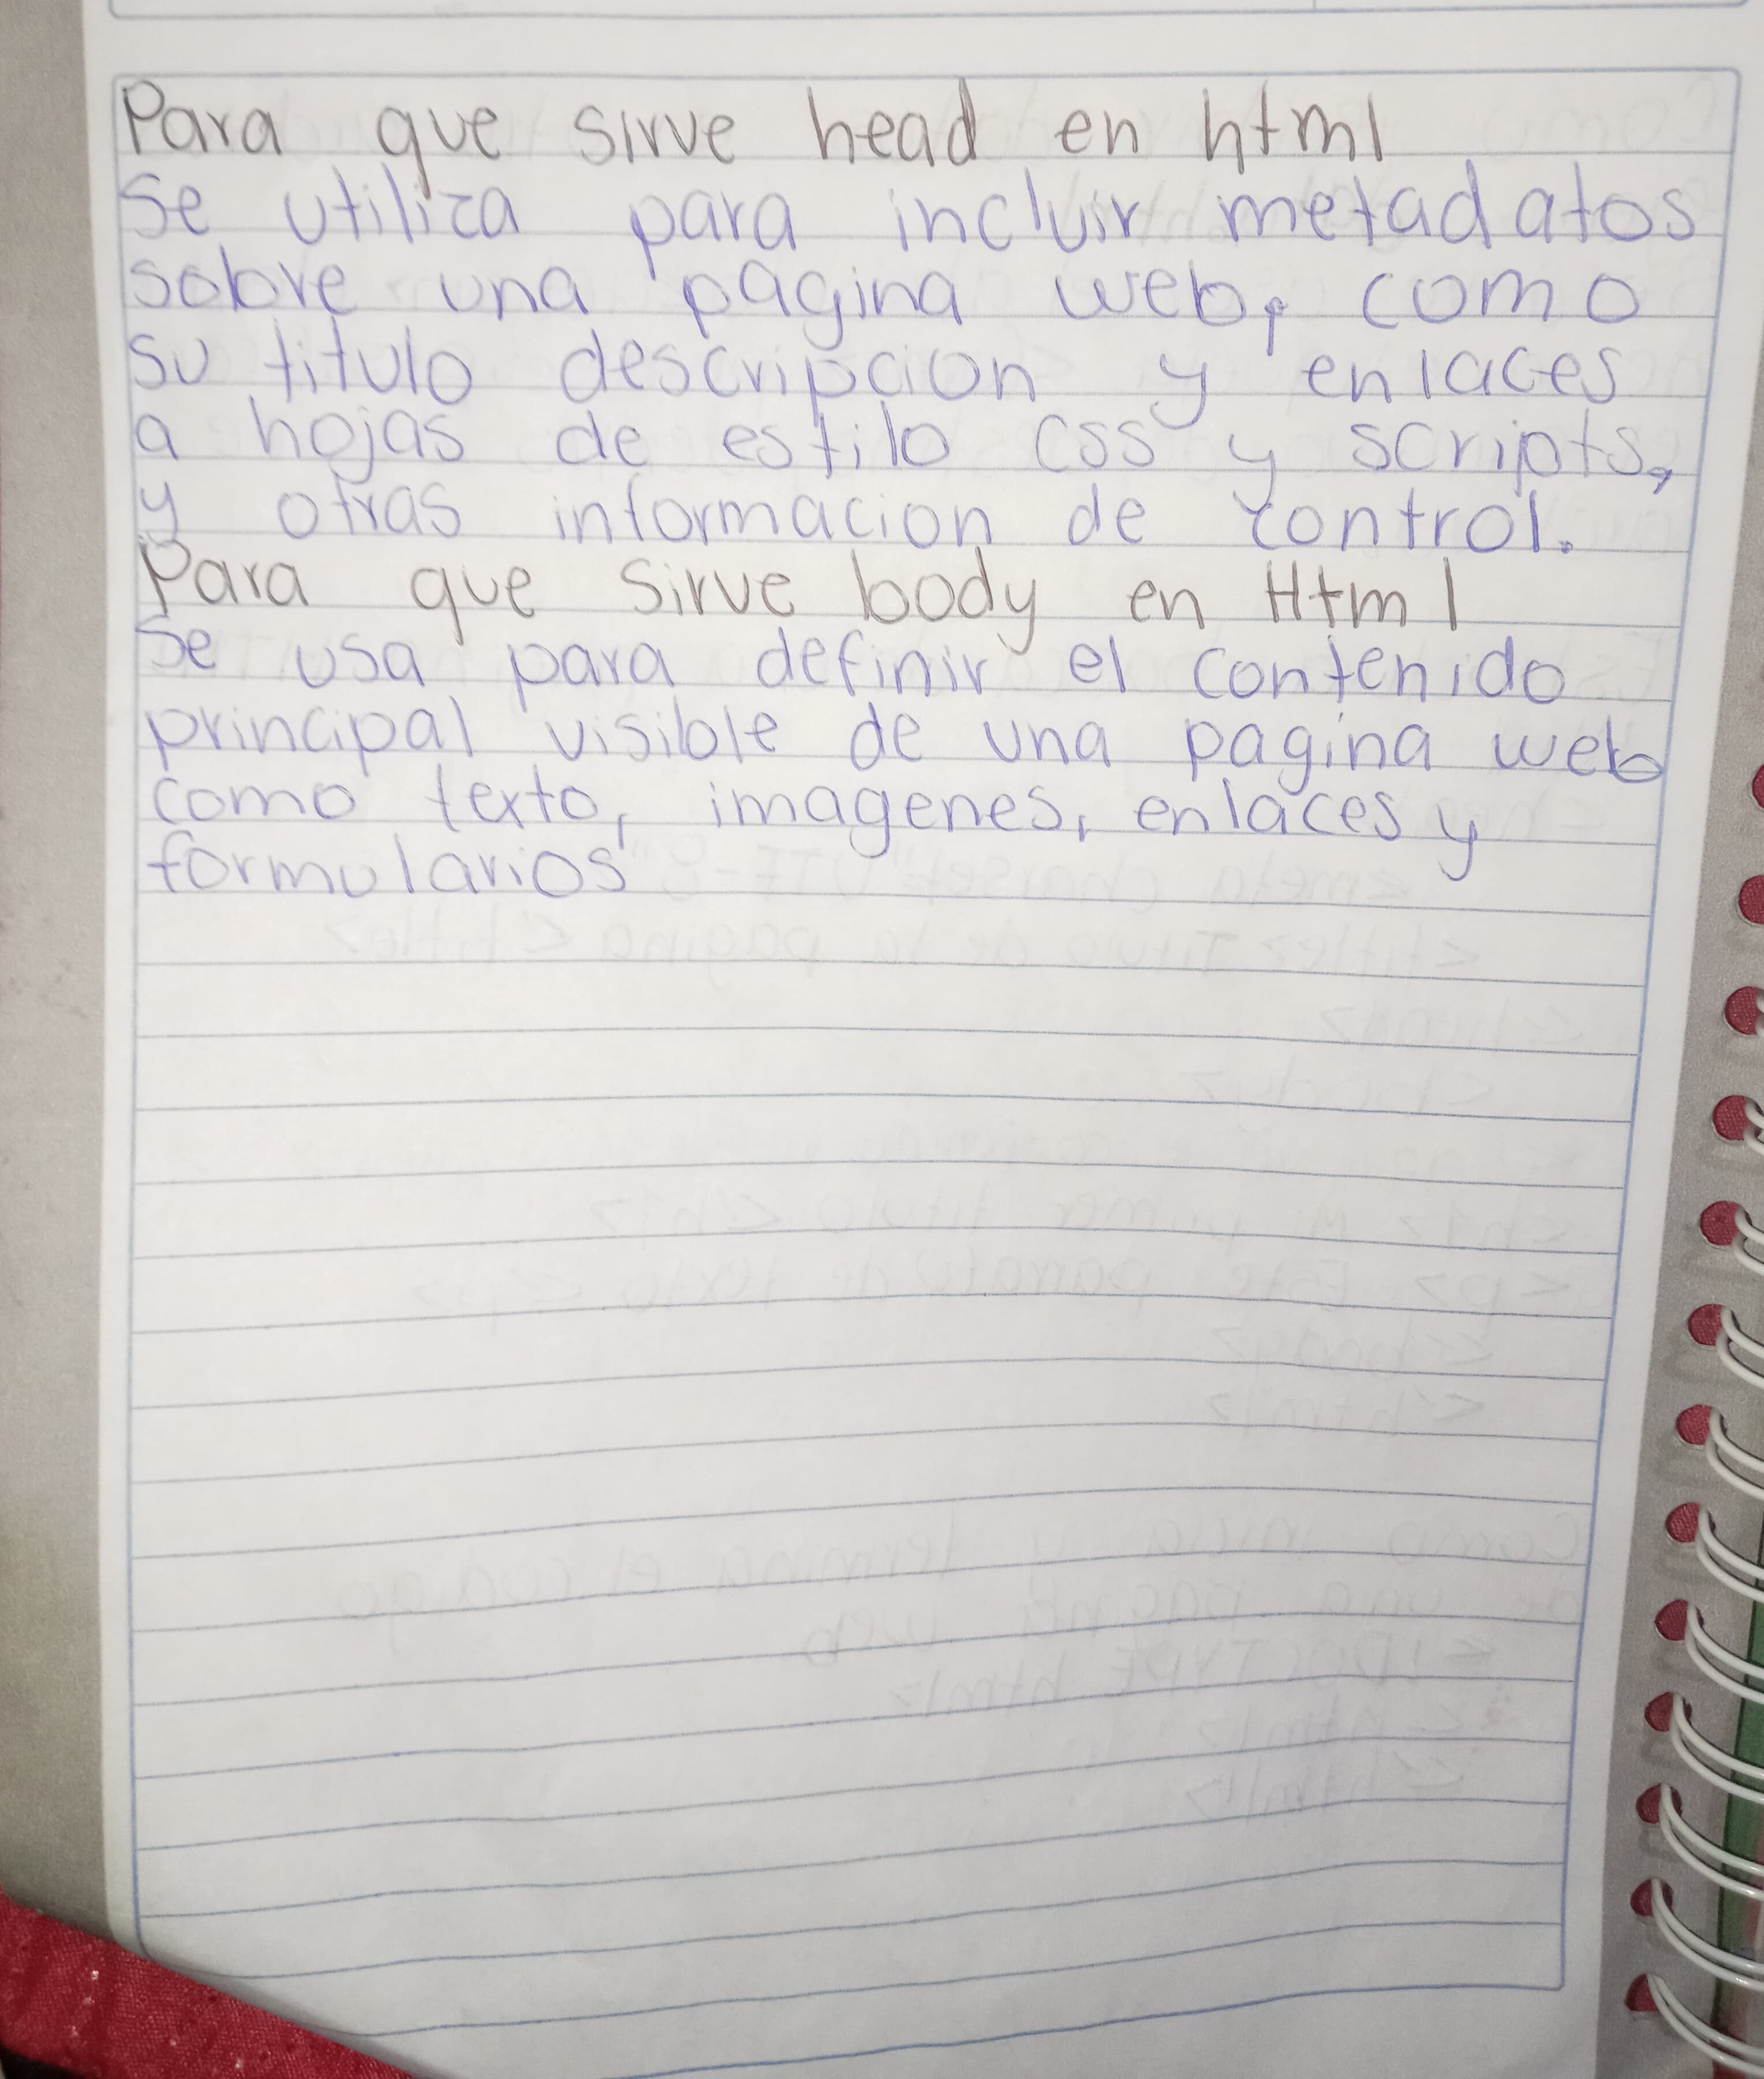 Para que sirve head en html
Se utiliza para incluir metadatos
sobre una pagina web, como
su titulo descripcion y enlaces
a hojas de estilo css y scripts,
y otras informacion de control.
Para que sirve body en Html
Se usa para definir el contenido
principal visible de una pagina web
como texto, imagenes, enlaces y
formularios